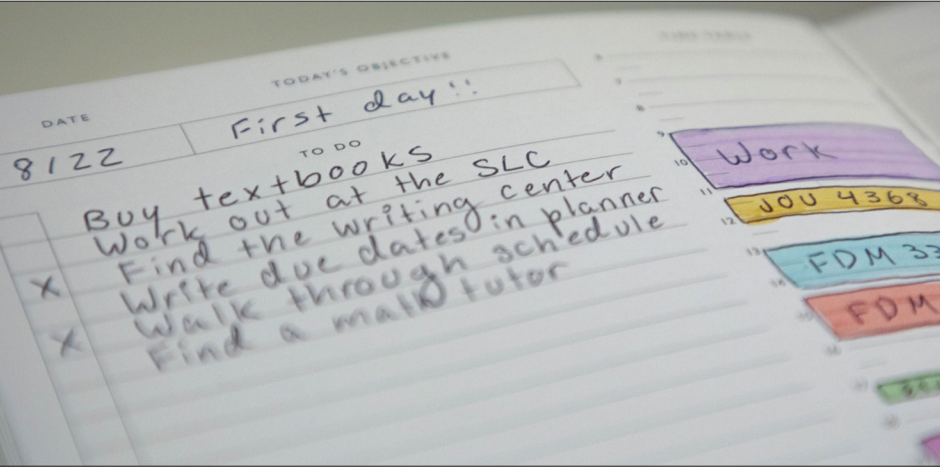 DATE
TODAY'S OBJECTIVE
8/22
First day!!
TO DO
Buy textbooks
Work out at the SLC
Find the writing center
x Write due dates in planner
Walk through schedule
x Find a math tutor
TIME TABLE
7
8
9
10 Work
11
12 JOU 4368
13 FDM 33
14
FDM